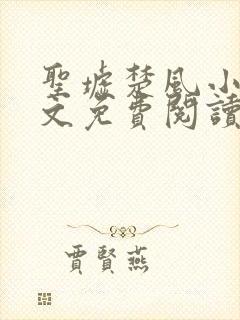 聖墟楚風小
文免費閱讀
賈賢燕